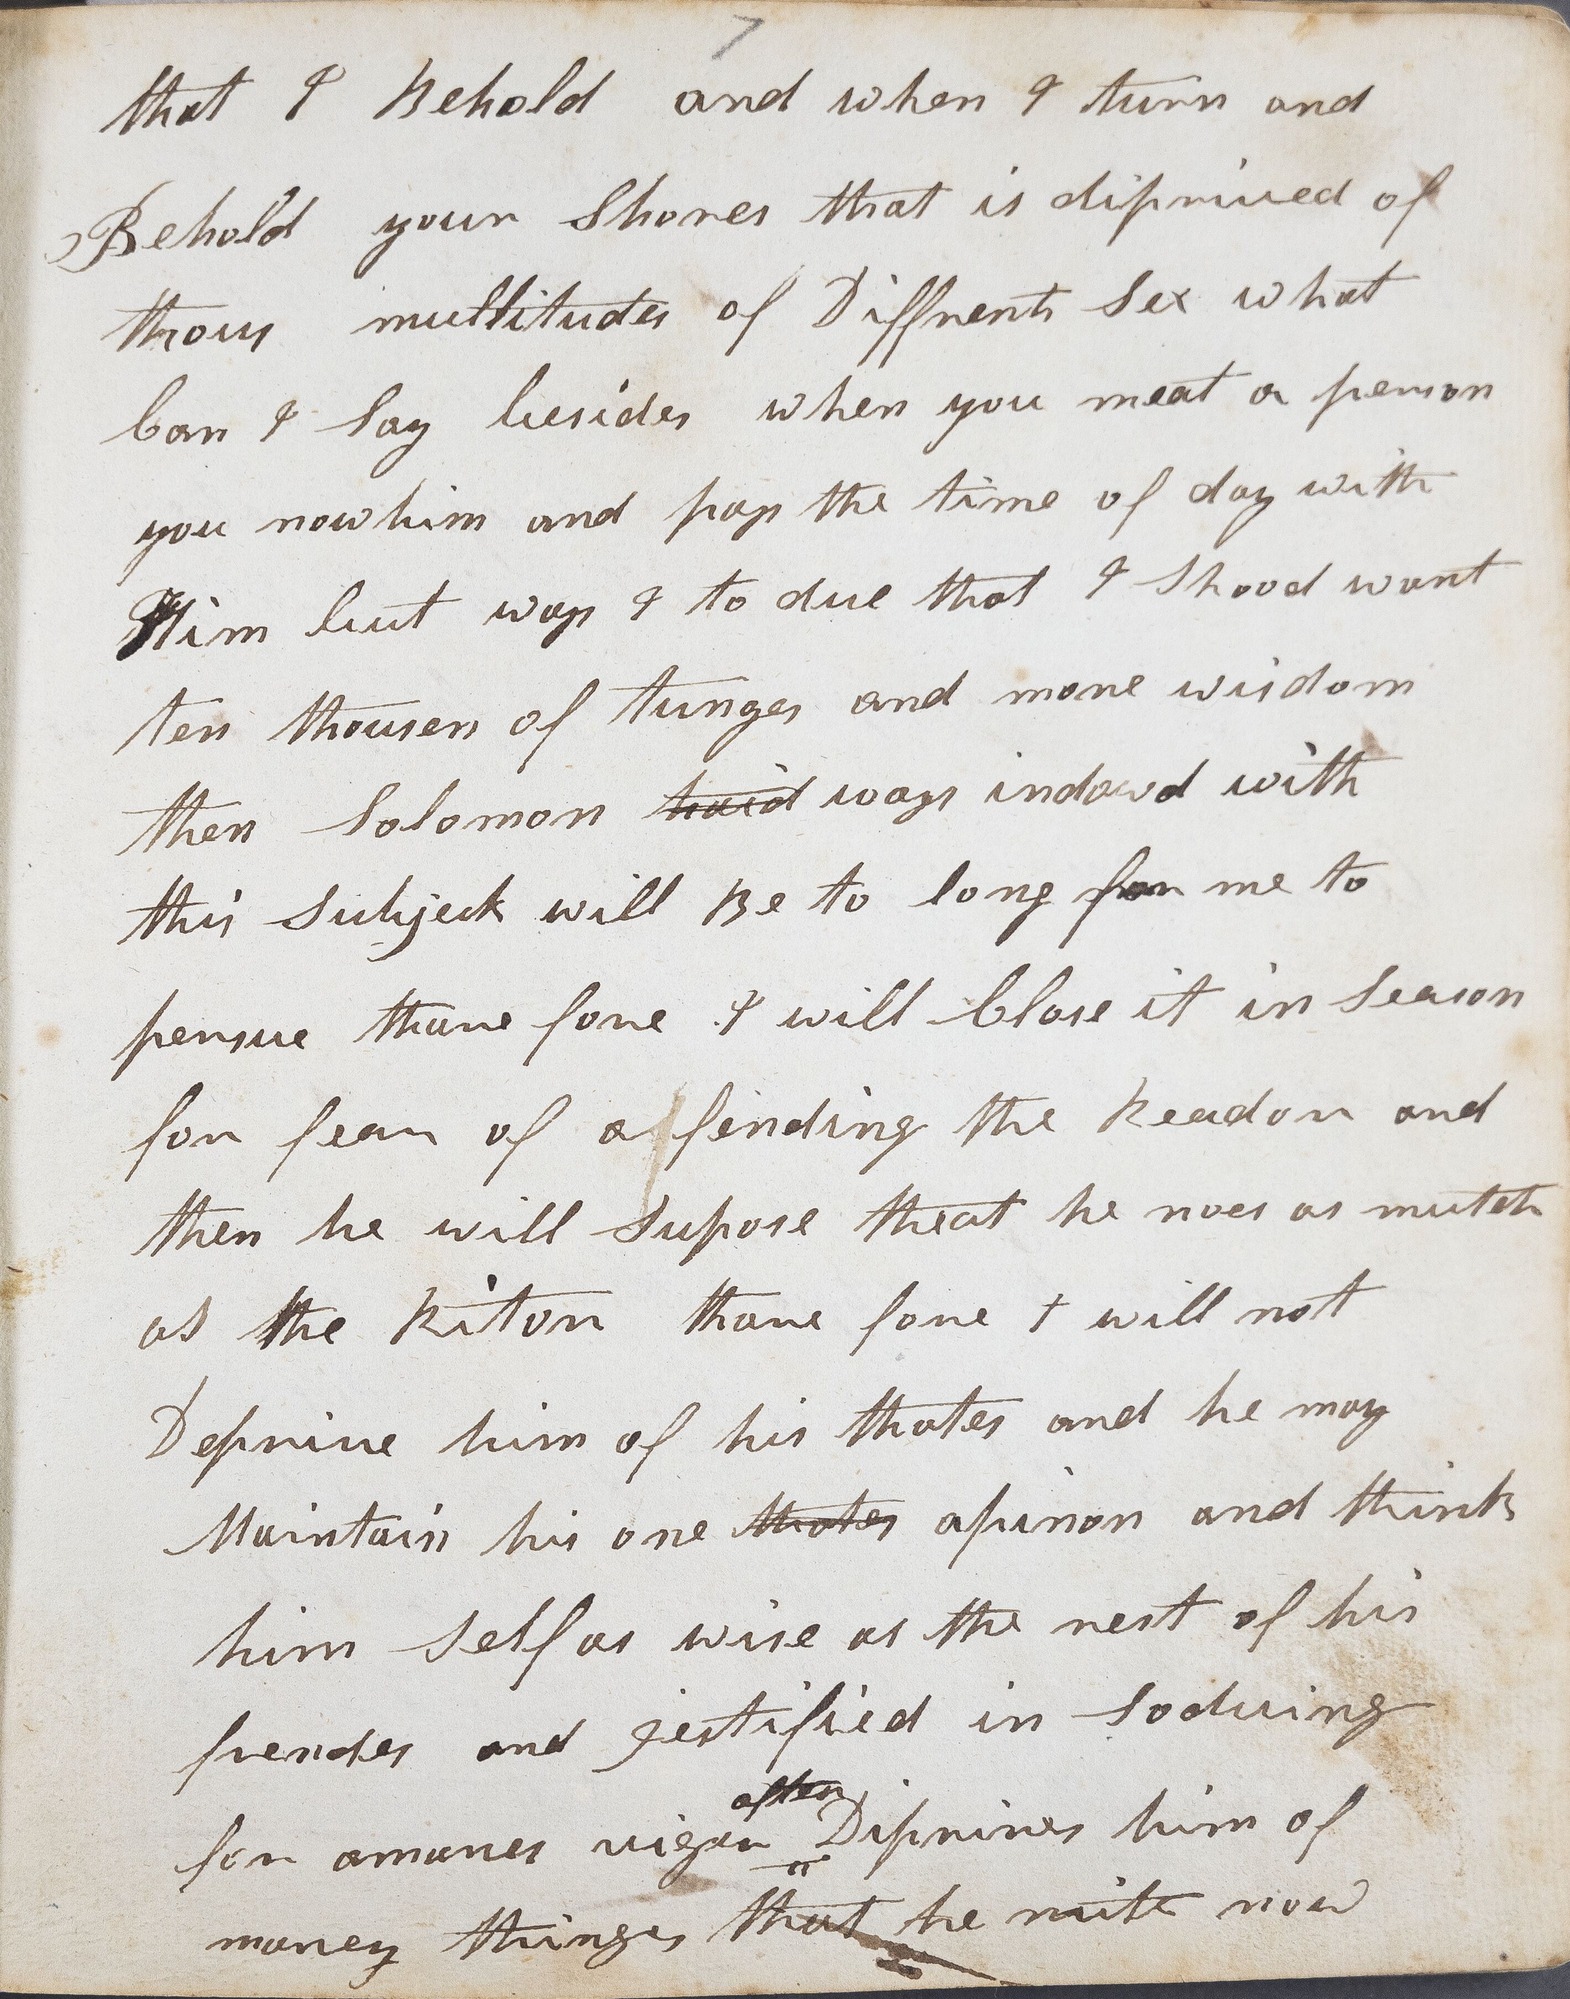 7
that I Behold and when I turn and
Behold your Shores that is diprived of
thous multitudes of Diffrent Sex what
Can I Say besides when you meat a person
you now him and pays the time of day with
Him but ways I to due that I Shood want
ten thousen of tunges and more wisdom
then Solomon haid ways indowd with
this Subjeck will Be to long for me to
persue thare fore I will Close it in Season
for fear of affending the Reador and
then he will Supose theat he noes as mutch
as the Ritor thare fore I will not
Deprive him of his thotes and he may
Maintain his one thotes apinon and think
him Self as wise as the rest of his
frendes and jestified in So duing
often
for amanes vigor Diprives him of
maney thinges that he mite now